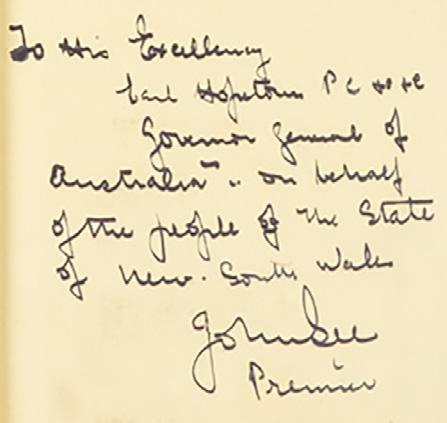 To His Excellency
Earl Hopetoun P C &c &c
Governor General of
Australia" .. on behalf
of the people of the State
of New. South Wales
John See
Premier